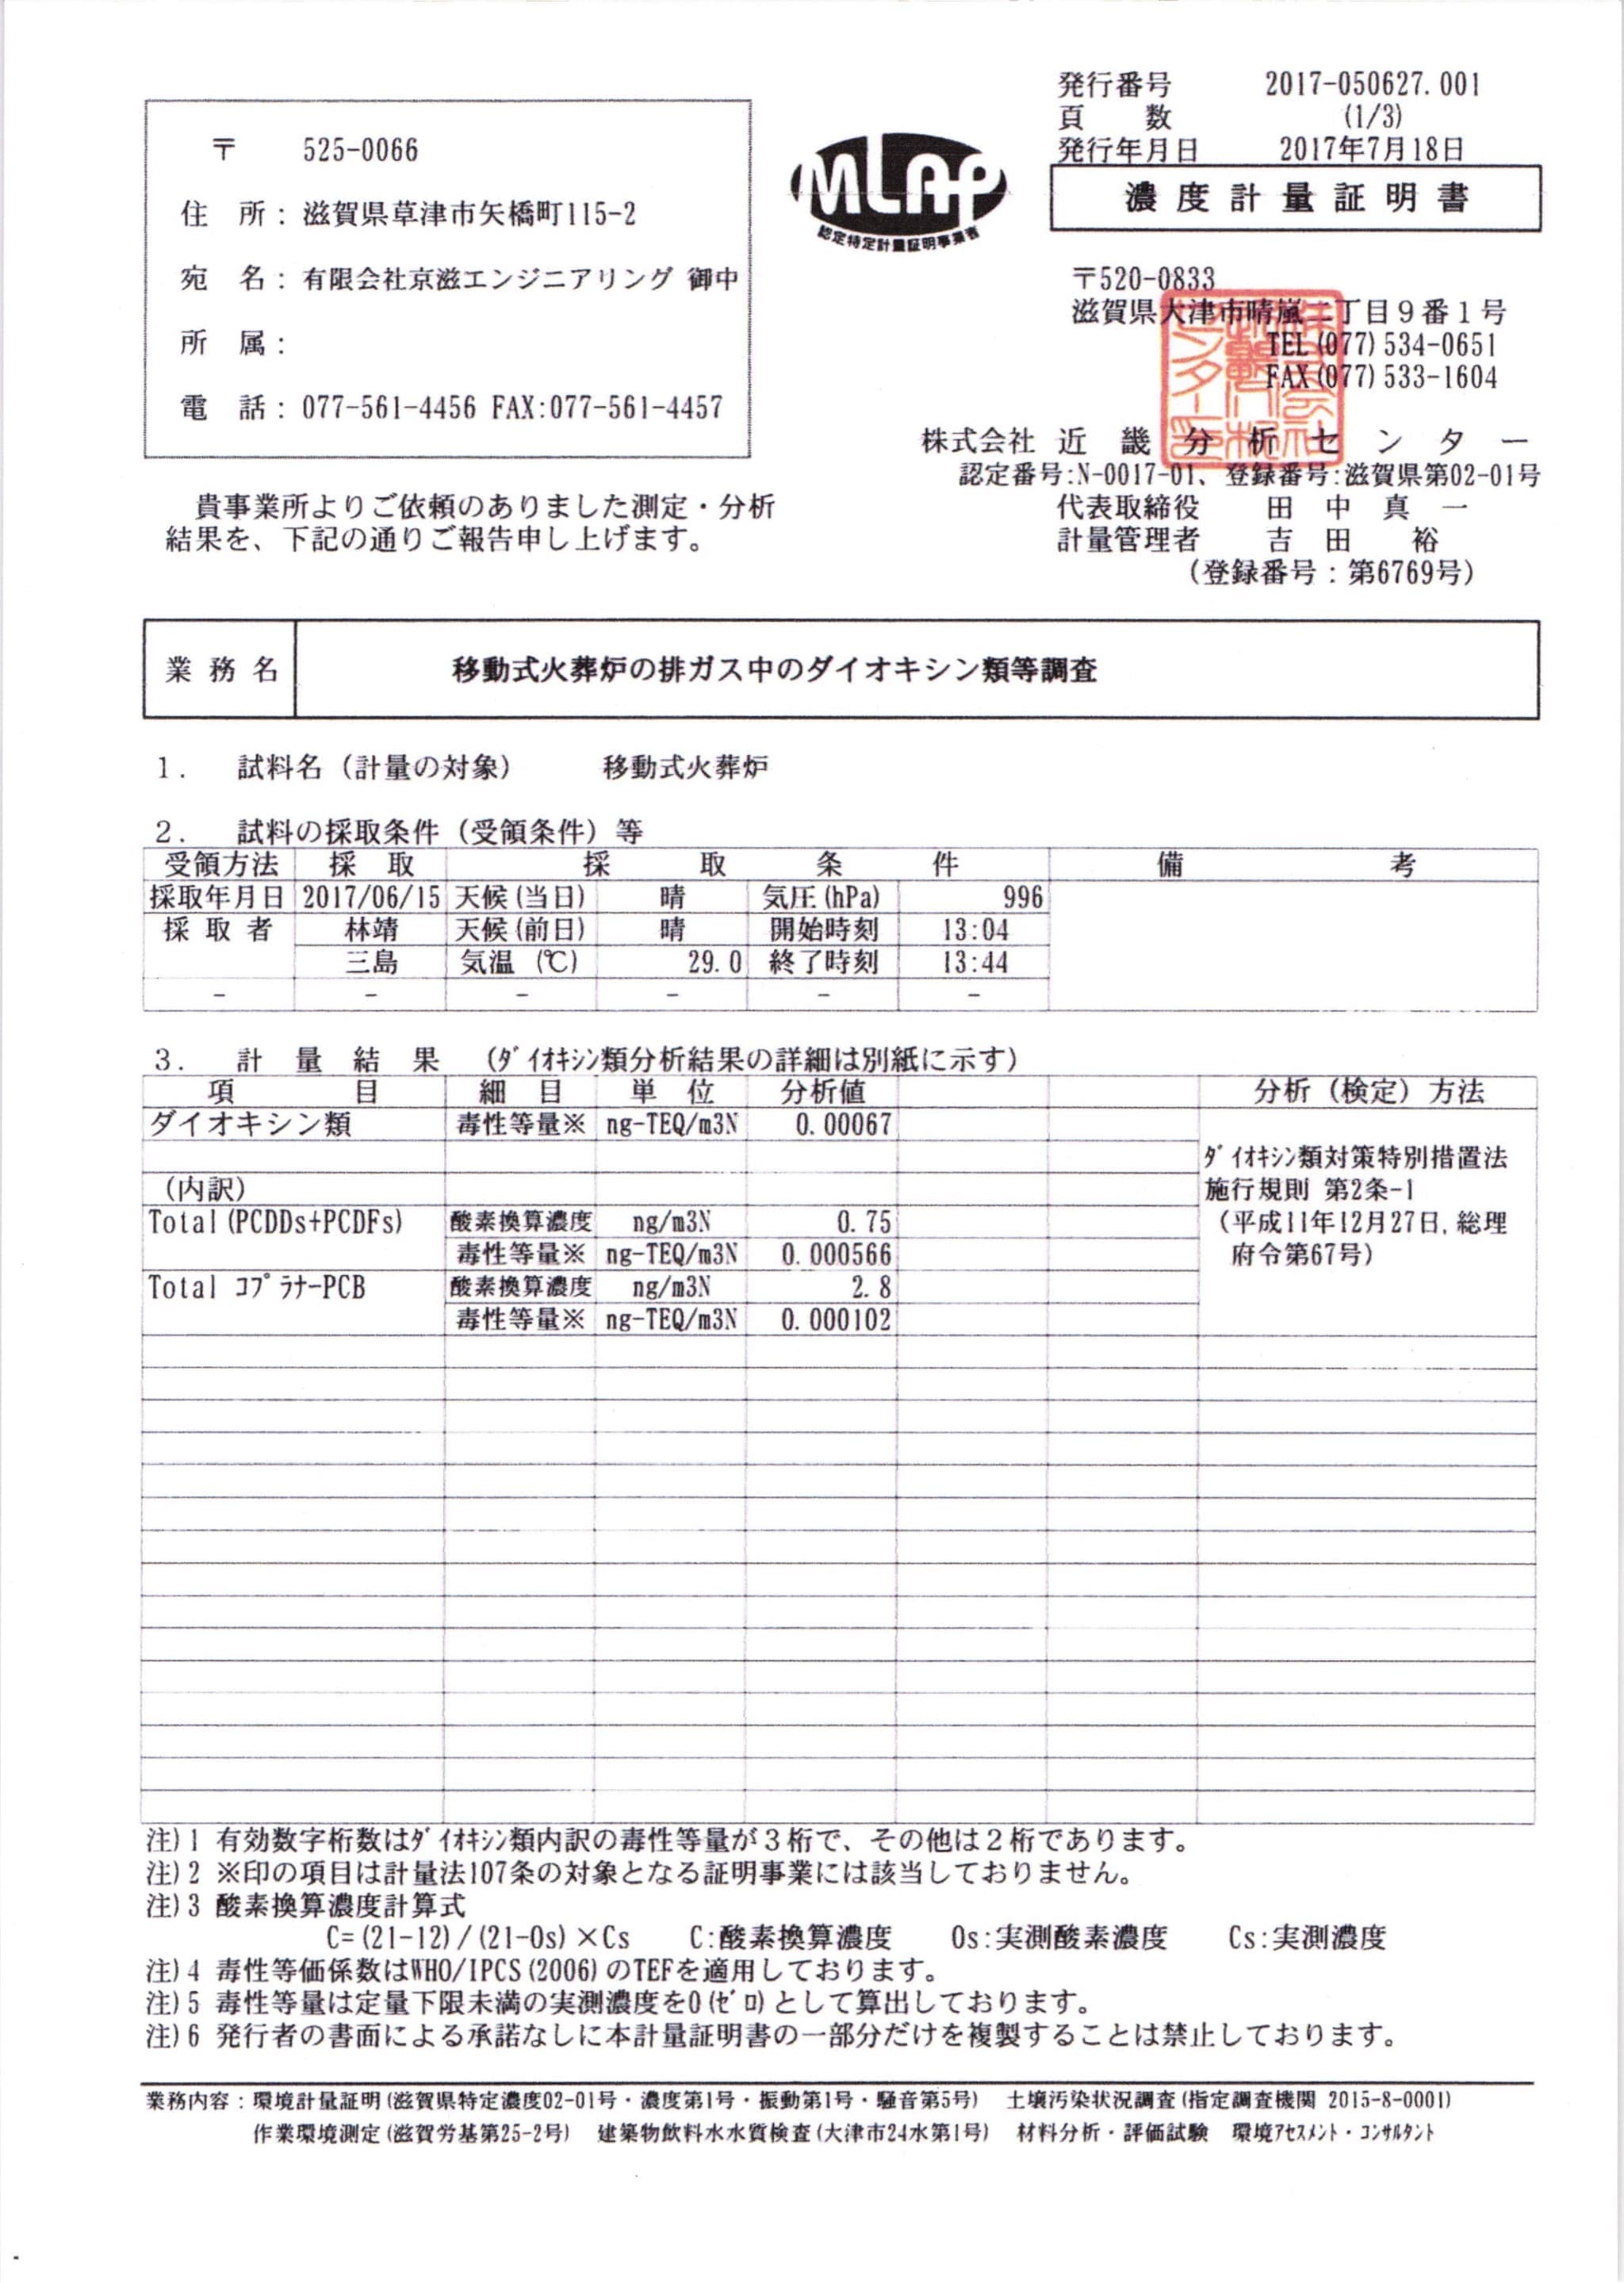 発行番号 2017-050627.001
頁 数 (1/3)
発行年月日 2017年7月18日
濃度計量証明書
〒 525-0066
住 所：滋賀県草津市矢橋町115-2
宛 名：有限会社京滋エンジニアリング 御中
所 属：
電 話：077-561-4456 FAX:077-561-4457
MLAP
認定特定計量証明事業者
〒520-0833
滋賀県大津市晴嵐二丁目９番１号
TEL(077)534-0651
FAX(077)533-1604
株式会社 近 畿 分 析 セ ン タ ー
認定番号:N-0017-01、登録番号:滋賀県第02-01号
代表取締役 田 中 真 一
計量管理者 吉 田 裕
（登録番号：第6769号）
貴事業所よりご依頼のありました測定・分析
結果を、下記の通りご報告申し上げます。
業 務 名 移動式火葬炉の排ガス中のダイオキシン類等調査
１． 試料名（計量の対象） 移動式火葬炉
２． 試料の採取条件（受領条件）等
受領方法 採 取 採 取 条 件 備 考
採取年月日 2017/06/15 天候(当日) 晴 気圧(hPa) 996
採 取 者 林靖 天候(前日) 晴 開始時刻 13:04
三島 気温（℃） 29.0 終了時刻 13:44
－ － － － － －
３． 計 量 結 果 （ﾀﾞｲｵｷｼﾝ類分析結果の詳細は別紙に示す）
項 目 細 目 単 位 分析値 分析（検定）方法
ダイオキシン類 毒性等量※ ng-TEQ/m3N 0.00067
ﾀﾞｲｵｷｼﾝ類対策特別措置法
（内訳） 施行規則 第2条-1
Total(PCDDs+PCDFs) 酸素換算濃度 ng/m3N 0.75 （平成11年12月27日,総理
毒性等量※ ng-TEQ/m3N 0.000566 府令第67号）
Total ｺﾌﾟﾗﾅｰPCB 酸素換算濃度 ng/m3N 2.8
毒性等量※ ng-TEQ/m3N 0.000102
注)1 有効数字桁数はﾀﾞｲｵｷｼﾝ類内訳の毒性等量が３桁で、その他は２桁であります。
注)2 ※印の項目は計量法107条の対象となる証明事業には該当しておりません。
注)3 酸素換算濃度計算式
C=(21-12)/(21-Os)×Cs C:酸素換算濃度 Os:実測酸素濃度 Cs:実測濃度
注)4 毒性等価係数はWHO/IPCS(2006)のTEFを適用しております。
注)5 毒性等量は定量下限未満の実測濃度を0(ｾﾞﾛ)として算出しております。
注)6 発行者の書面による承諾なしに本計量証明書の一部分だけを複製することは禁止しております。
業務内容：環境計量証明(滋賀県特定濃度02-01号・濃度第1号・振動第1号・騒音第5号) 土壌汚染状況調査(指定調査機関 2015-8-0001)
作業環境測定(滋賀労基第25-2号) 建築物飲料水水質検査(大津市24水第1号) 材料分析・評価試験 環境ｱｾｽﾒﾝﾄ・ｺﾝｻﾙﾀﾝﾄ